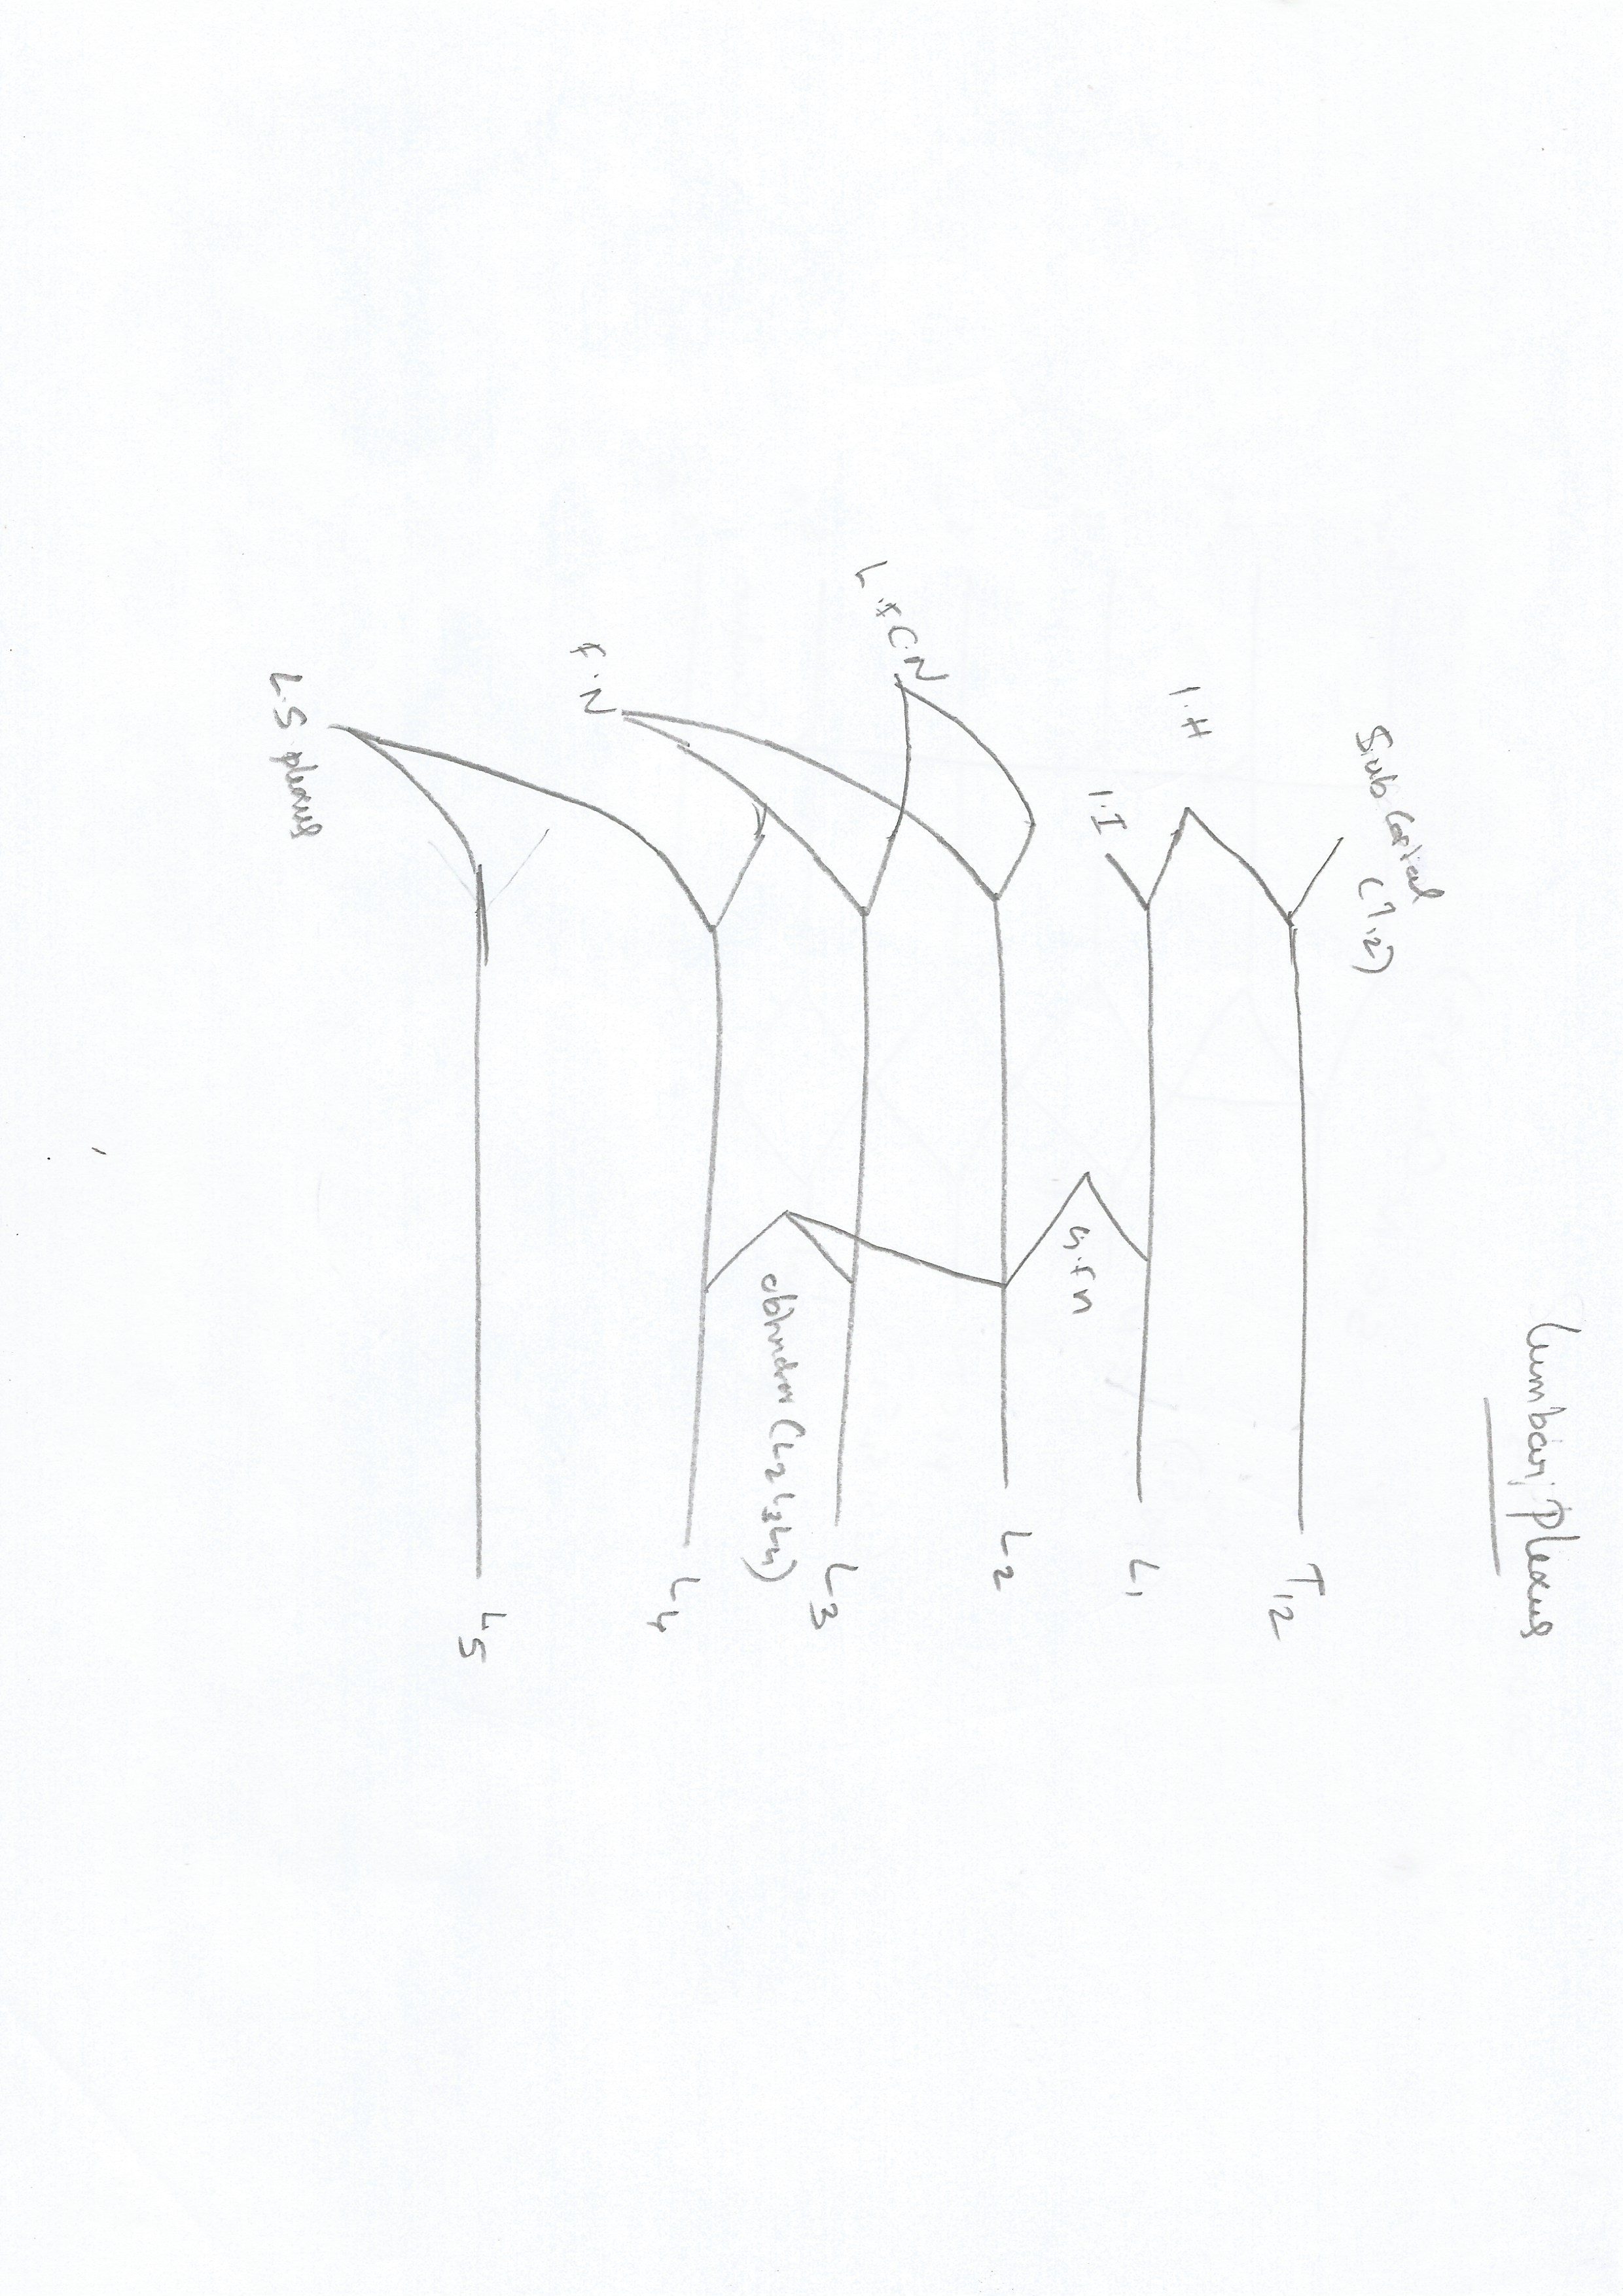 Lumbar plexus
Sub Costal
(T12)
T12
I.H
L1
I.I
G.F.N
L2
L.F.C.N
L3
obturator (L2 L3 L4)
L4
F.N
L5
L.S plexus